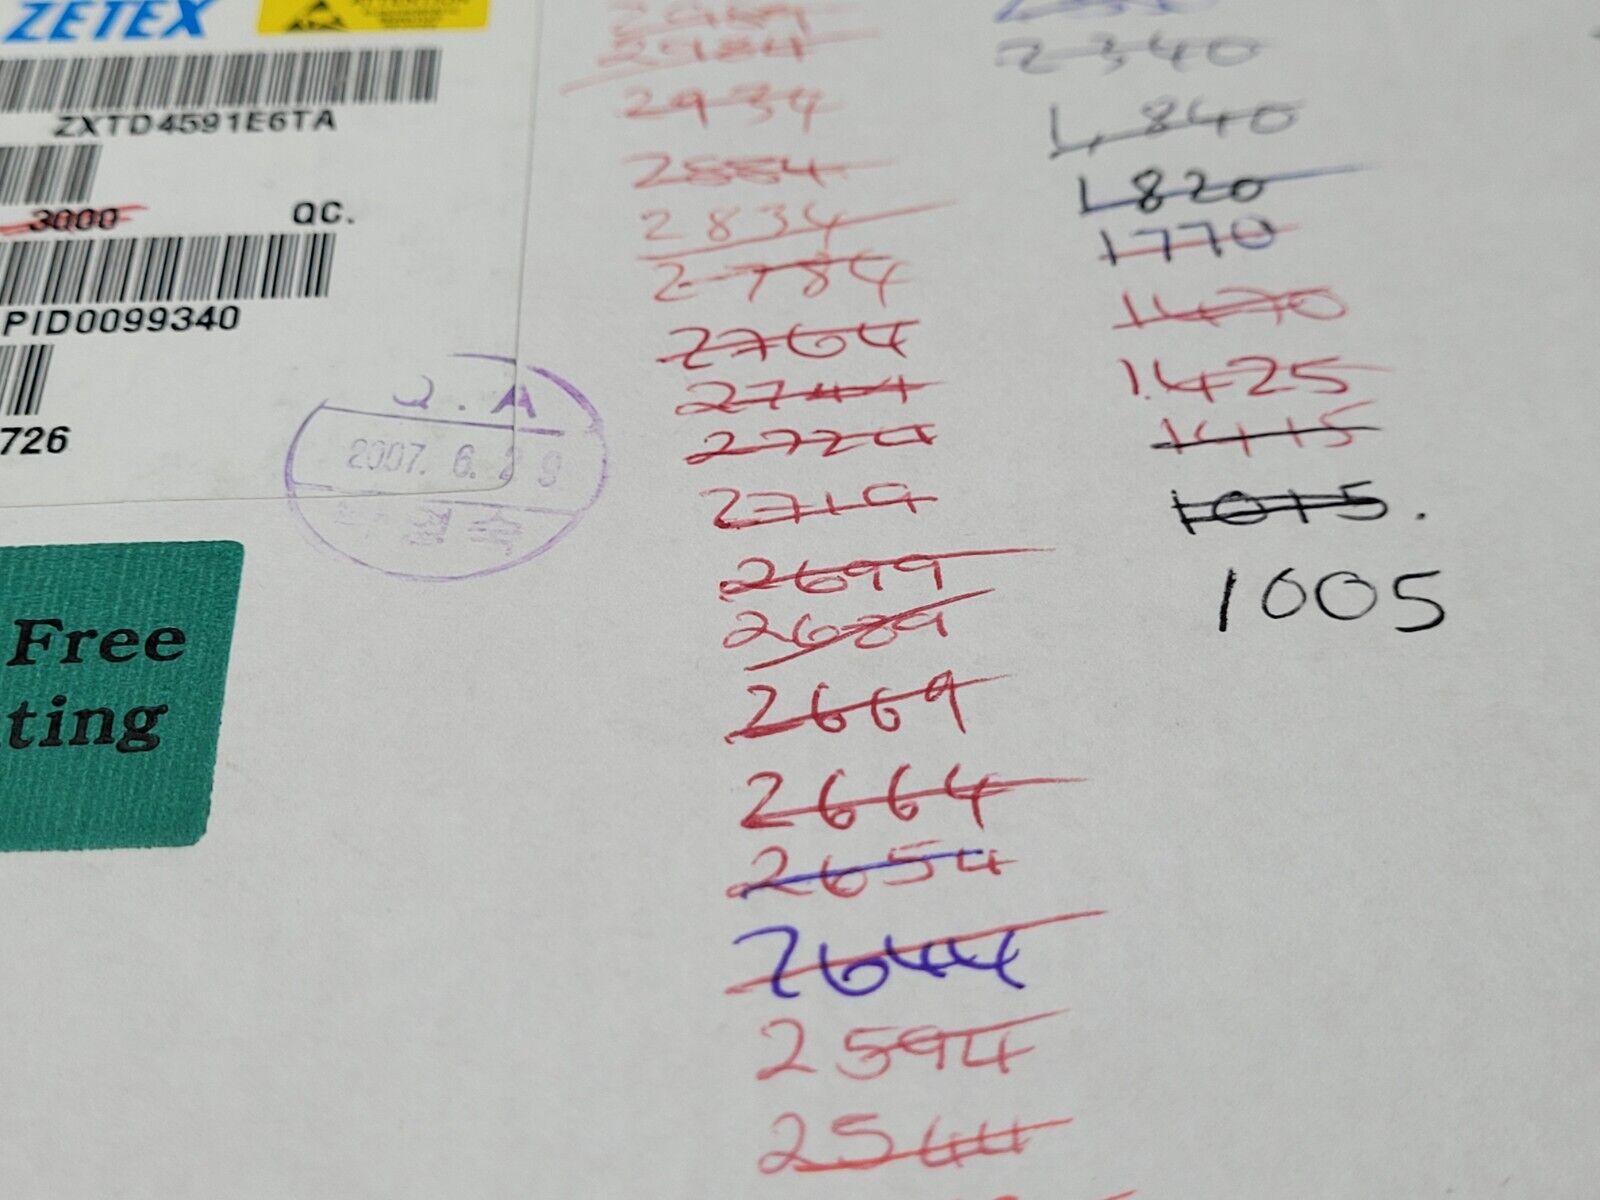 ZETEX
ZXTD4591E6TA
3000 QC.
PID0099340
726
Q.A
2007. 6. 29
Free
ting
2984
2934
2884
2834
2784
2764
2744
2724
2719
2699
2689
2669
2664
2654
2644
2594
2544
2340
1,840
1820
1770
1470
1425
1415
1015.
1005